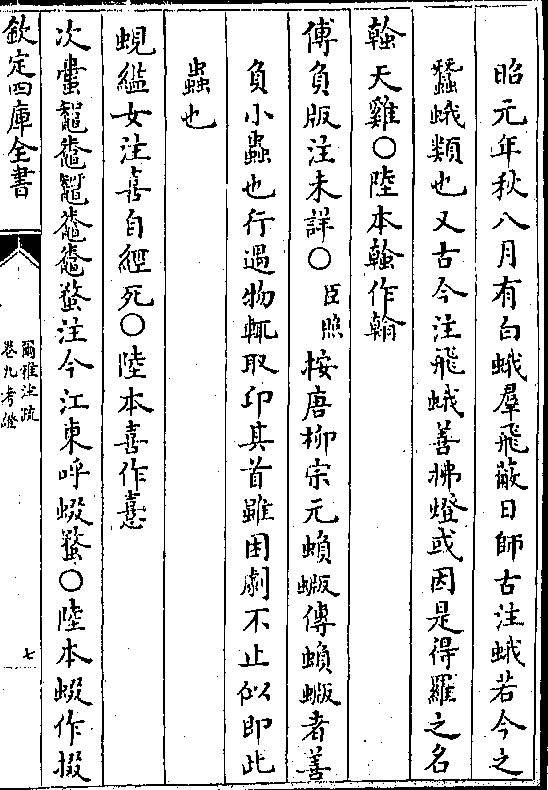 昭元年秋八月有白蛾羣飛蔽日師古注蛾若今之
蠶蛾類也又古今注飛蛾善拂燈或因是得羅之名
螒天雞○陸本螒作翰
傅負版注未詳○臣照按唐柳宗元蝜蝂傳蝜蝂者善
負小蟲也行遇物輒取卬其首雖困劇不止似即此
蟲也
蜆縊女注喜自經死○陸本喜作憙
次蟗鼅鼄鼅鼄鼄蝥注今江東呼蝃蝥○陸本蝃作掇
欽定四庫全書
爾雅注疏
卷九考證
七